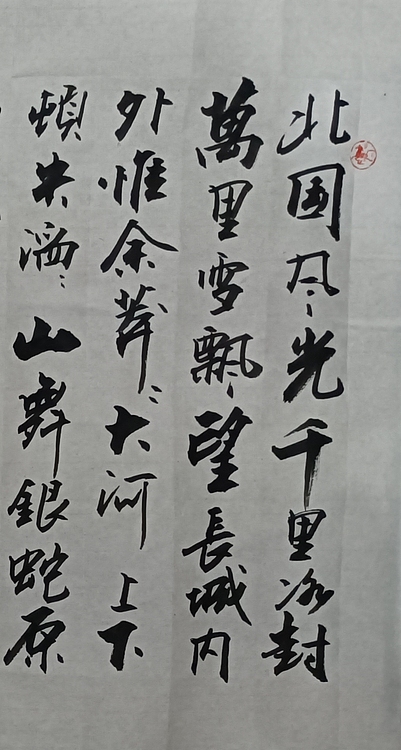 北国风光千里冰封
萬里雪飄望長城内
外惟余莽〻大河上下
頓失滔〻山舞銀蛇原